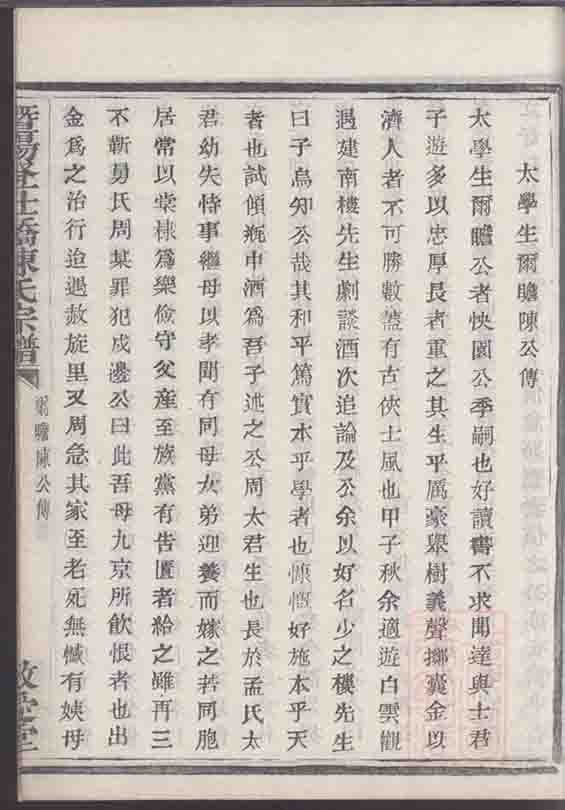 太學生爾瞻陳公傳
太學生爾瞻公者怏園公季嗣也好讀書不求聞達與士君
子遊多以忠厚長者重之其生平厲豪舉樹義聲擲囊金以
濟人者不可勝數蓋有古俠士風也甲子秋余適遊白雲觀
遇建南樓先生劇談酒次追論及公余以好名少之樓先生
曰子烏知公哉其和平篤實本乎學者也慷慨好施本乎天
者也試傾瓶中酒爲吾子述之公周太君生也長於孟氏太
君幼失恃事繼母以孝聞有同母女弟迎養而嫁之若同胞
居常以棠棣爲樂儉守父產至族黨有告匱者給之雖再三
不靳舅氏周某罪犯戍邊公曰此吾母九京所飲恨者也出
金爲之治行迨遇赦旋里又周急其家至老死無憾有姨母
暨陽 仕橋陳氏宗譜
爾瞻陳公傳